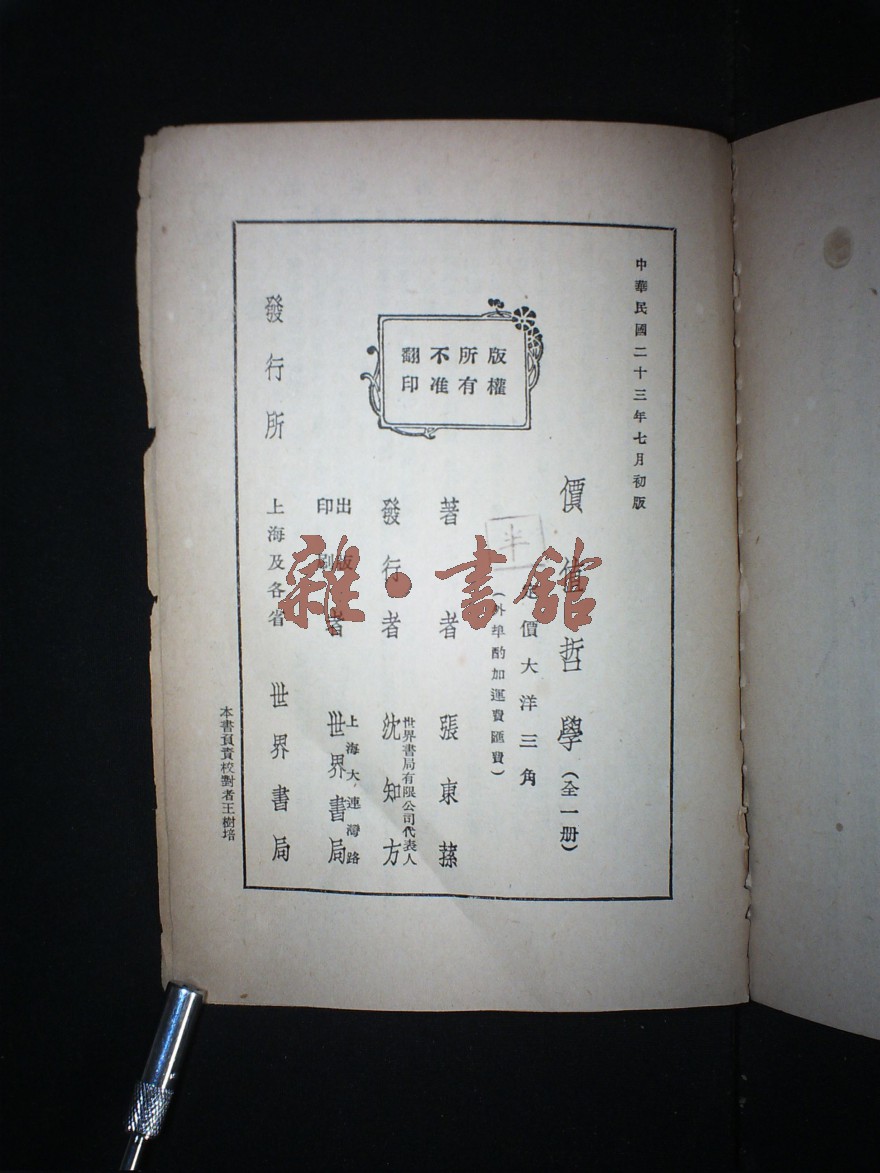 中華民國二十三年七月初版
價值哲學(全一册)
定價大洋三角
(外埠酌加運費匯費)
半
版權
所有
不准
翻印
著者 張東蓀
發行者 沈知方
世界書局有限公司代表人
出版
印刷
者 世界書局
上海大連灣路
發行所 上海及各省 世界書局
本書負責校對者王樹培
雜·書館